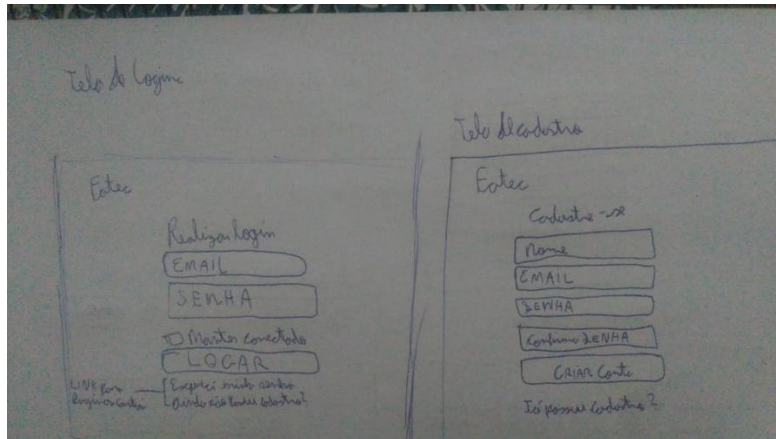 Tela de Login
Eatec
Realizar login
EMAIL
SENHA
Manter conectado
LOGAR
LINK para
Esqueci minha senha
Ainda não possui cadastro?
Tela de cadastro
Eatec
Cadastre-se
Nome
EMAIL
SENHA
Confirma SENHA
CRIAR Conta
Já possui cadastro?